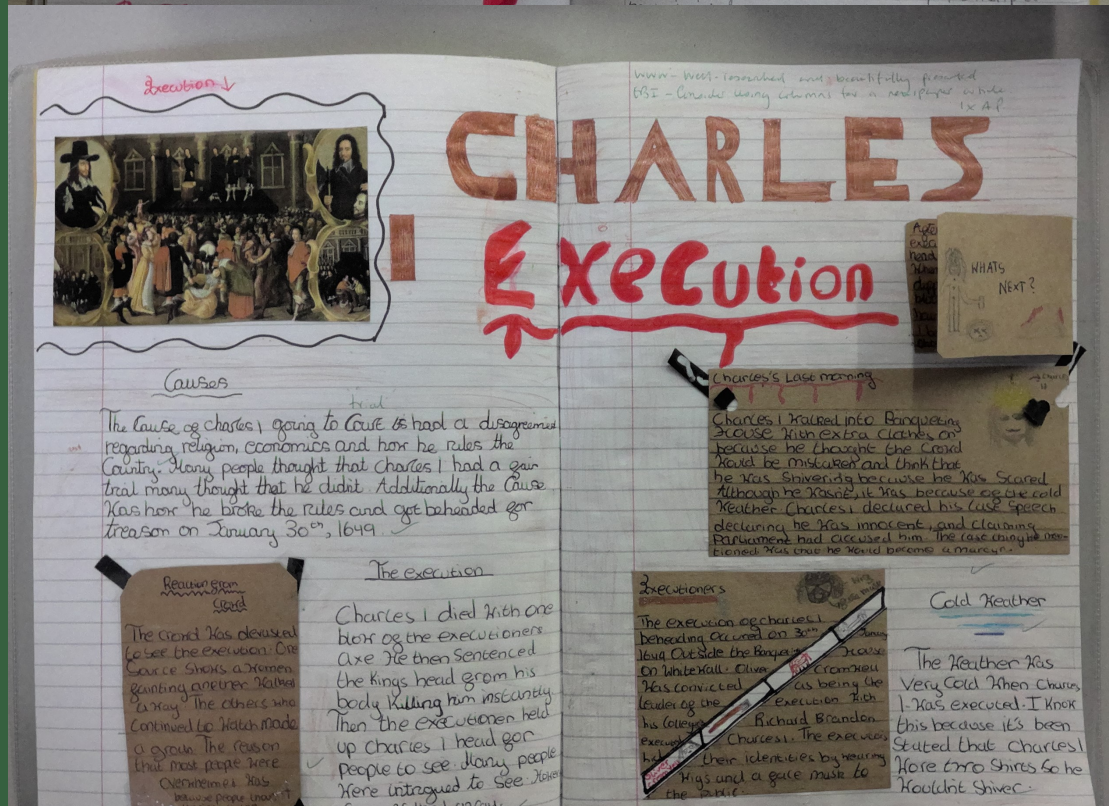 Execution
www - well-researched and beautifully presented
EBI - Consider using columns for a newspaper article
1x AP
CHARLES
I
Execution
WHATS
NEXT?
Causes
trial
The Cause of charles I going to Court is had a disagreement
regarding religion, economics and how he rules the
Country. Many people thought that charles I had a fair
trial many thought that he didnt. Additionally the Cause
was how he broke the rules and got beheaded for
treason on January 30th, 1649.
Reaction from
Crowd
The Crowd was devasted
to see the execution. One
Source Shows a women
fainting another walked
away. The others who
continued to watch made
a groan. The reason
that most people were
overwhelmed was
because people
The execution
Charles I died with one
blow of the executioners
axe. He then sentenced
the kings head from his
body killing him instantly.
Then the executioner held
up charles I head for
people to see. Many people
were intrigued to see.
Charles's Last morning
Charles I walked into Banqueting
House with extra clothes on
because he thought the Crowd
would be mistaken and think that
he was Shivering because he was Scared
Although he wasnt, it was because of the cold
weather. Charles I declared his last speech
declaring he was innocent, and claiming
Parliament had accused him. The last thing he men-
tioned was that he would become a martyr.
Executioners
The execution of charles I
beheading occured on 30th January
1649 Outside the Banquet House
on Whitehall. Oliver Cromwell
was convicted as being the
Leader of the execution with
his college Richard Brandon
Charles I. The
their identities by wearing
wigs and a face mask to
the public.
Cold Weather
The weather was
very Cold when Charles
I was executed. I know
this because it's been
Stated that Charles I
wore two Shirts So he
wouldnt Shiver.